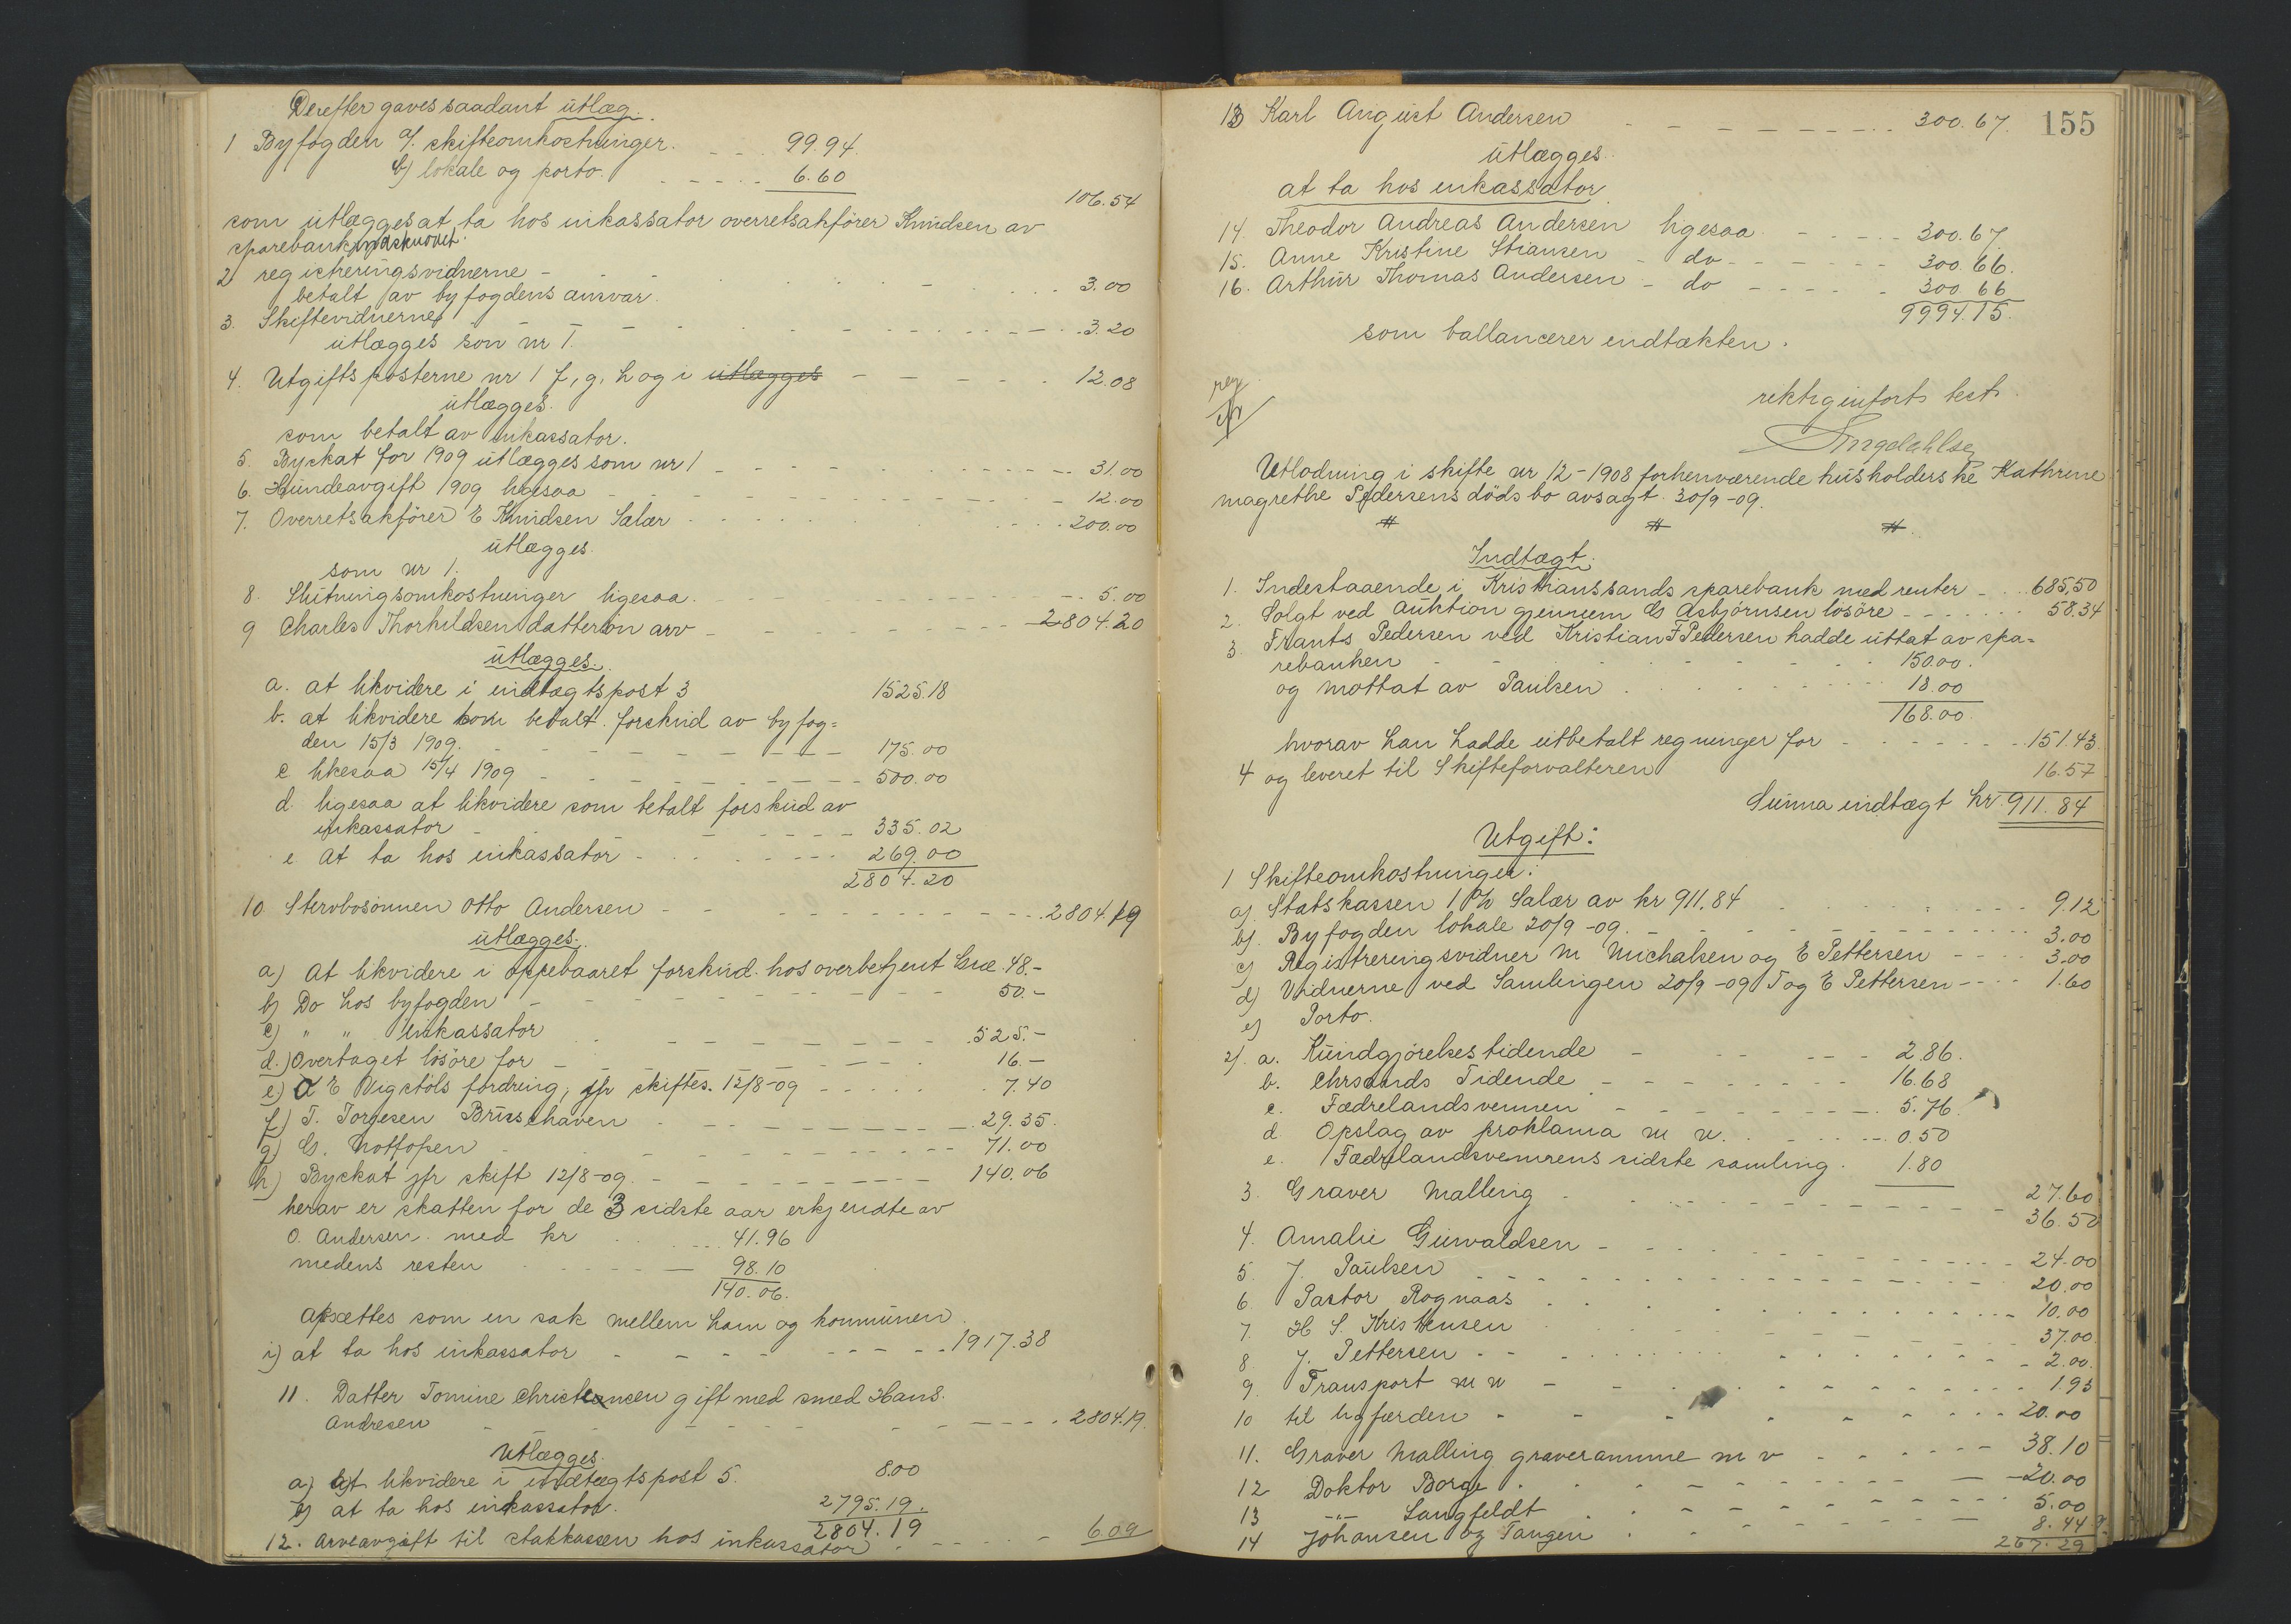 Derefter gaves saadant utlæg.
1 Byfogden a/. skifteomkostninger. 99.94
b) lokale og porto. 6.60
106.54
som utlægges at ta hos inkassator overretsakfører Knudsen av
sparebankindskuddet.
2 registreringsvidnerne - 3.00
betalt av byfogdens ansvar.
3. Skiftevidnerne - 3.20
utlægges som nr 1.
4. Utgiftsposterne nr 1 f, g, h og i utlægges - 12.08
utlægges.
som betalt av inkassator.
5. Byskat for 1909 utlægges som nr 1 - 31.00
6. Hundeavgift 1909 ligesaa - 12.00
7. Overretsakfører E Knudsen Salær - 200.00
utlægges.
som nr 1.
8. Slutningsomkostninger ligesaa. 5.00
9 Charles Thorkildsen dattersøn arv - 2804.20
utlægges.
a. at likvidere i indtægtspost 3 1525.18
b. at likvidere som betalt forskud av byfog=
den 15/3 1909. - 175.00
c likesaa 15/4 1909 - 500.00
d. ligesaa at likvidere som betalt forskud av
inkassator - 335.02
e at ta hos inkassator - 269.00
2804.20
10. Stervbosønnen Otto Andersen - 2804.19
utlægges.
a) At likvidere i oppebaaret forskud hos overbetjent 48.-
b) Do hos byfogden - 50.-
c) " " Inkassator 525.-
d.) Overtaget løsøre for - 16.-
e.) A E Vigstøls fordring, jfr skiftes. 12/8-09 7.40
f) T. Torjesen 29.35.
g) G. 71.00
h) Byskat jfr skift 12/8-09. - 140.06
herav er skatten for de 3 sidste aar erkjendte av
O. Andersen med kr 41.96
medens resten 98.10
140.06.
avsættes som en sak mellem ham og kommunen.
i) at ta hos inkassator - 1917.38
11. Datter Tomine Christensen gift med smed Hans
Andresen - 2804.19.
Utlægges.
a) at likvidere i indtægtspost 5. 8.00
b) at ta hos inkassator. 2795.19.
2804.19
12. Arveavgift til statskassen hos inkassator 6.09
13 Karl August Andersen 300.67. 155
utlægges.
at ta hos inkassator.
14. Theodor Andreas Andersen ligesaa 300.67.
15. Anne Kristine Stiansen - do - 300.66.
16. Arthur Thomas Andersen - do - 300.66
9994.15.
som ballancerer indtækten.
reg
rektig infort test
Utlodning i skifte nr 12-1908 forhenværende husholderske Kathrine
Magrethe Pedersens dödsbo avsagt 30/9-09.
# # #
Indtægt.
1. Indestaaende i Kristianssands sparebank med renter - 685,50
2. Solgt ved auktion gjennem G Asbjörnsen lösöre - 58.34
3 Frants Pedersen ved Kristian F Pedersen hadde uttat av spa=
rebanken - 150.00.
og mottat av Paulsen. 18.00
168.00.
hvorav han hadde utbetalt regninger for - 151.43.
4 og leveret til Skifteforvalteren 16.57
Summa indtægt kr. 911.84
Utgift:
1 Skifteomkostninger:
a). Statskassen 1 % Salær av kr 911.84 9.12
b). Byfogden lokale 20/9-09. - 3.00
c) Registreringsvidner M Michalsen og E Pettersen - 3.00
d) Vidnerne ved Samlingen 20/9-09 T og E Pettersen - 1.60
e) Porto.
2). a. Kundgjörelsestidende - 2.86.
b. Chrsands Tidende - 16.68
c. Fædrelandsvennen - 5.76.
d. Opslag av proklama m v. 0.50
e. Fædrelandsvennens sidste samling. 1.80
27.60
3. Graver Malling - 36.50
4. Amalie Gunvaldsen - 24.00
5. J. Paulsen 20.00
6. Pastor Rognaas 10.00
7. H S. Kristensen 37.00
8 J. Pettersen - 2.00.
9. Transport m v - 1.93
10 til ligfærden - 20.00
11. Graver Malling m v 38.10
12 Doktor Borge - 20.00
13 -"- Langfeldt 5.00
14 Johansen og Tangen 8.44
267.29